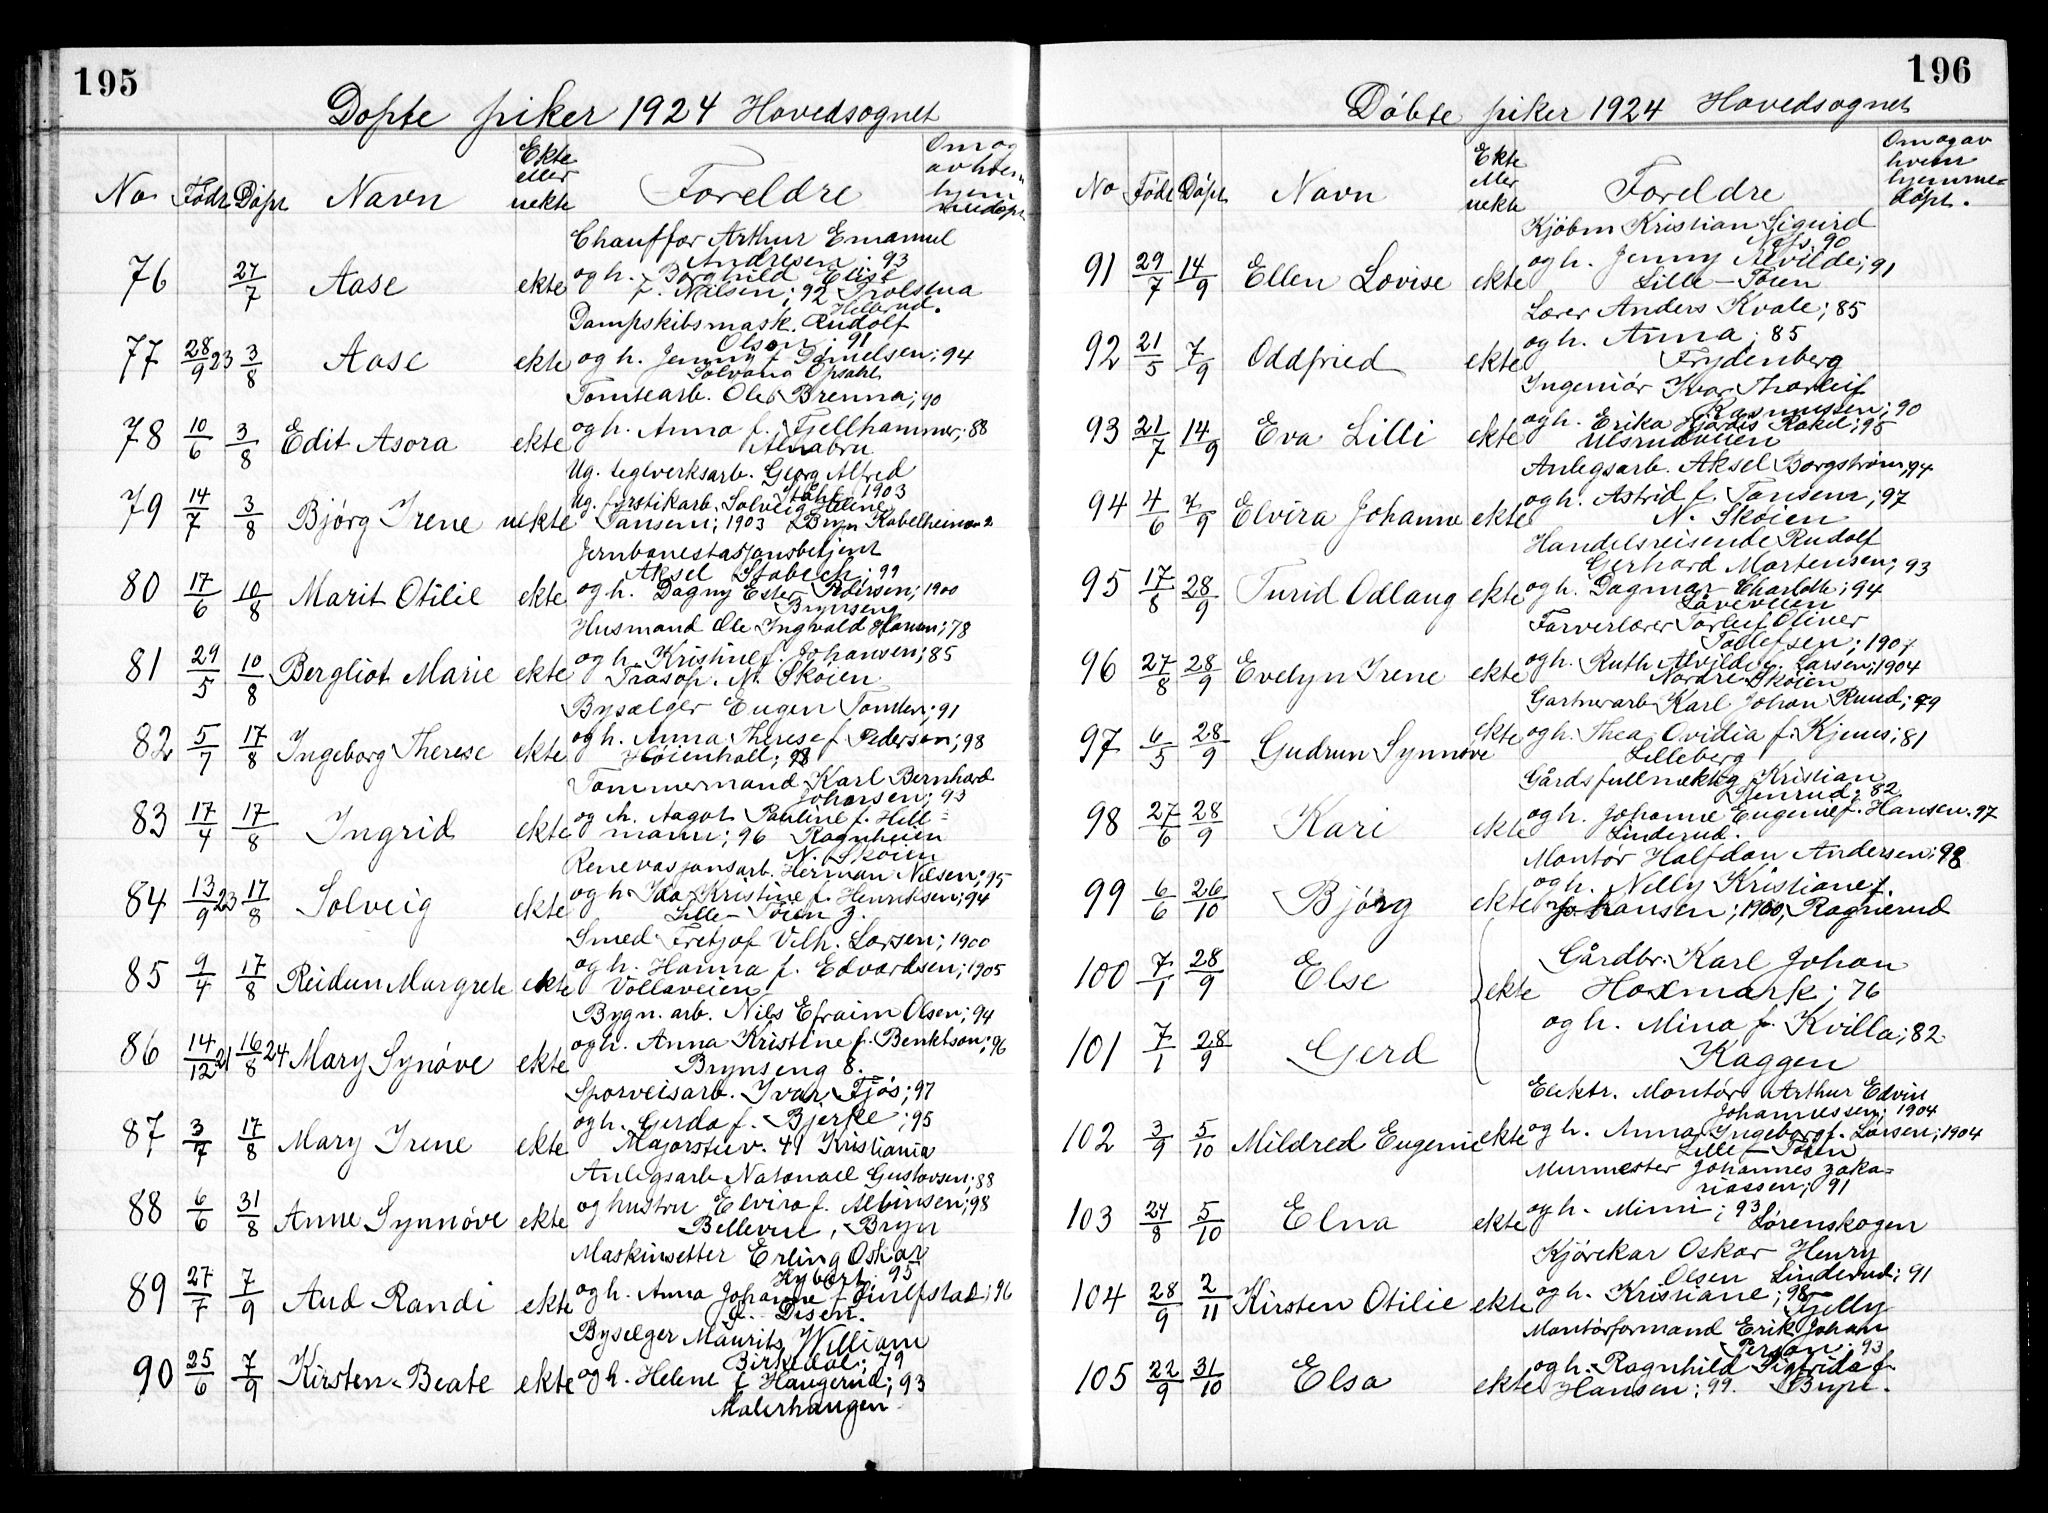 195
Døpte piker 1924 Hovedsognet
No Født Døpt Navn Ekte eller uekte Foreldre Om og av hvem hjemmedøpt
Chauffør Arthur Emanuel
Andresen; 93
76 27/7 Aase ekte og h. Borghild Elise
f. Nilsen; 92
Dampskibsmask. Rudolf
Olsen; 91
77 28/9 23 3/8 Aase ekte og h. Jenny f. Danielsen; 94
Solvang Opsahl
Tomtearb. Ole Brenna; 90
78 10/6 3/8 Edit Asora ekte og h. Anna f. Fjellhammer; 88
Alnabru
Ug. teglverksarb. Georg Alfred
Ståhl 1903
79 14/7 3/8 Bjørg Irene uekte Ug. fyrstikarb. Solveig Helene
Jansen; 1903 Bryn
Jernbanestasjonsbetjent
Aksel Stabech; 99
80 17/6 10/8 Marit Otilie ekte og h. Dagny Ester Pedersen; 1900
Brynseng
Husmand Ole Ingvald Hansen; 78
81 29/5 10/8 Bergliot Marie ekte og h. Kristine f. Johansen; 85
Trasop. N. Skøien
Bysælger Eugen Tomter; 91
82 5/7 17/8 Ingeborg Therese ekte og h. Anna Therese f. Pederson; 98
Høienhall; 98
Tømmermand Karl Bernhard
Johansen; 93
83 17/4 17/8 Ingrid ekte og h. Aagot Pauline f. Hell-
mann; 96 Ragnheien
N. Skøien
Renevasjonsarb. Herman Nilsen; 95
84 13/9 23 17/8 Solveig ekte og h. Ida Kristine f. Henriksen; 94
Lille-Tøien 3.
Smed Fretjof Vilh. Larsen; 1900
85 9/4 17/8 Reidun Margrete ekte og h. Hanna f. Edvardsen; 1905
Vollaveien
Bygn. arb. Nils Efraim Olsen; 94
86 14/12 21 16/8 24 Mary Synøve ekte og h. Anna Kristine f. Benktson; 96
Brynseng 8.
Sporveisarb. Ivar Fjøs; 97
87 3/7 17/8 Mary Irene ekte og h. Gerda f. Bjerke; 95
Majorstuv. 41 Kristiania
Anlegsarb Natanael Gustavsen; 88
88 6/6 31/8 Anne Synnøve ekte og hustru Elvira f. Albinsen; 98
Bellevue, Bryn
Maskinsetter Erling Oskar
Nybort; 95
89 27/7 7/9 Aud Randi ekte og h. Anna Johanne f. ; 96
Disen.
Bysælger Maurits William
Birkedal; 79
90 25/6 7/9 Kirsten Beate ekte og h. Helene f. Haugerud; 93
Malerhaugen
196
Døbte piker 1924 Hovedsognet
No Født Døpt Navn Ekte eller uekte Foreldre Om og av hvem hjemmedøpt.
Kjøbm Kristian Sigurd
Næss. 90
91 29/7 14/9 Ellen Lovise ekte og h. Jenny Alvilde; 91
Lille-Tøien
Lærer Anders Kvale; 85
92 21/5 7/9 Oddfried ekte og h. Anna; 85
Frydenberg
Ingeniør Ivar Thorleif
Rasmussen; 90
93 21/7 14/9 Eva Lilli ekte og h. Erika Hjørdis Rakel; 95
Ulsrudveien
Anlegsarb. Aksel Borgstrøm, 94
94 4/6 7/9 Elvira Johanne ekte og h. Astrid f. Jansen; 97
N. Skøien
Handelsreisende Rudolf
Gerhard Mortensen; 93
95 17/8 28/9 Turid Odlaug ekte og h. Dagmar Charlotte; 94
Løveveien
Farverlærer Torleif Oliver
Tollefsen; 1901
96 27/8 28/9 Evelyn Irene ekte og h. Ruth Alvilde f. Larsen; 1904
Nordre Skøien
Gartnerarb Karl Johan Ruud; 79
97 6/5 28/9 Gudrun Synnøve ekte og h. Thea Ovidia f. Kjenes; 81
Lilleberg
Gårdsfullmektig Kristian
Stenrud; 82
98 27/6 28/9 Kari ekte og h. Johanne Eugenie f. Hansen. 97
Linderud.
Montør Halfdan Andersen; 98
99 6/6 26/10 Bjørg ekte og h. Nelly Kristiane f.
Johansen; 1900, Ragnerud
100 7/1 28/9 Else Gårdbr. Karl Johan
ekte Hoxmark; 76
101 7/1 28/9 Gerd og h. Mina f. Kvilla; 82
Kaggen
Elektr. Montør Arthur Edvin
Johannessen; 1904
102 3/9 5/10 Mildred Eugenie ekte og h. Anna Ingeborg f. Larsen; 1904
Lille-Tøien
Murmester Johannes Zaka-
riassen; 91
103 24/8 5/10 Elna ekte og h. Mimi; 93
Lørenskogen
Kjørekar Oskar Henry
Olsen Linderud; 91
104 28/9 2/11 Kirsten Otilie ekte og h. Kristiane; 98
Tjelly
Montørformand Erik Johan
Person; 93
105 22/9 31/10 Elsa ekte og h. Ragnhild Sigfrida f.
Hansen; 99. Bryn.